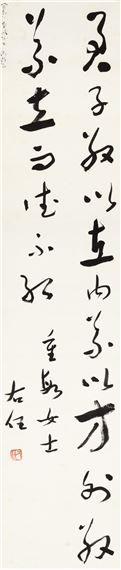 君子敬以直内義以方外敬
義立而德不孤
女士
右任